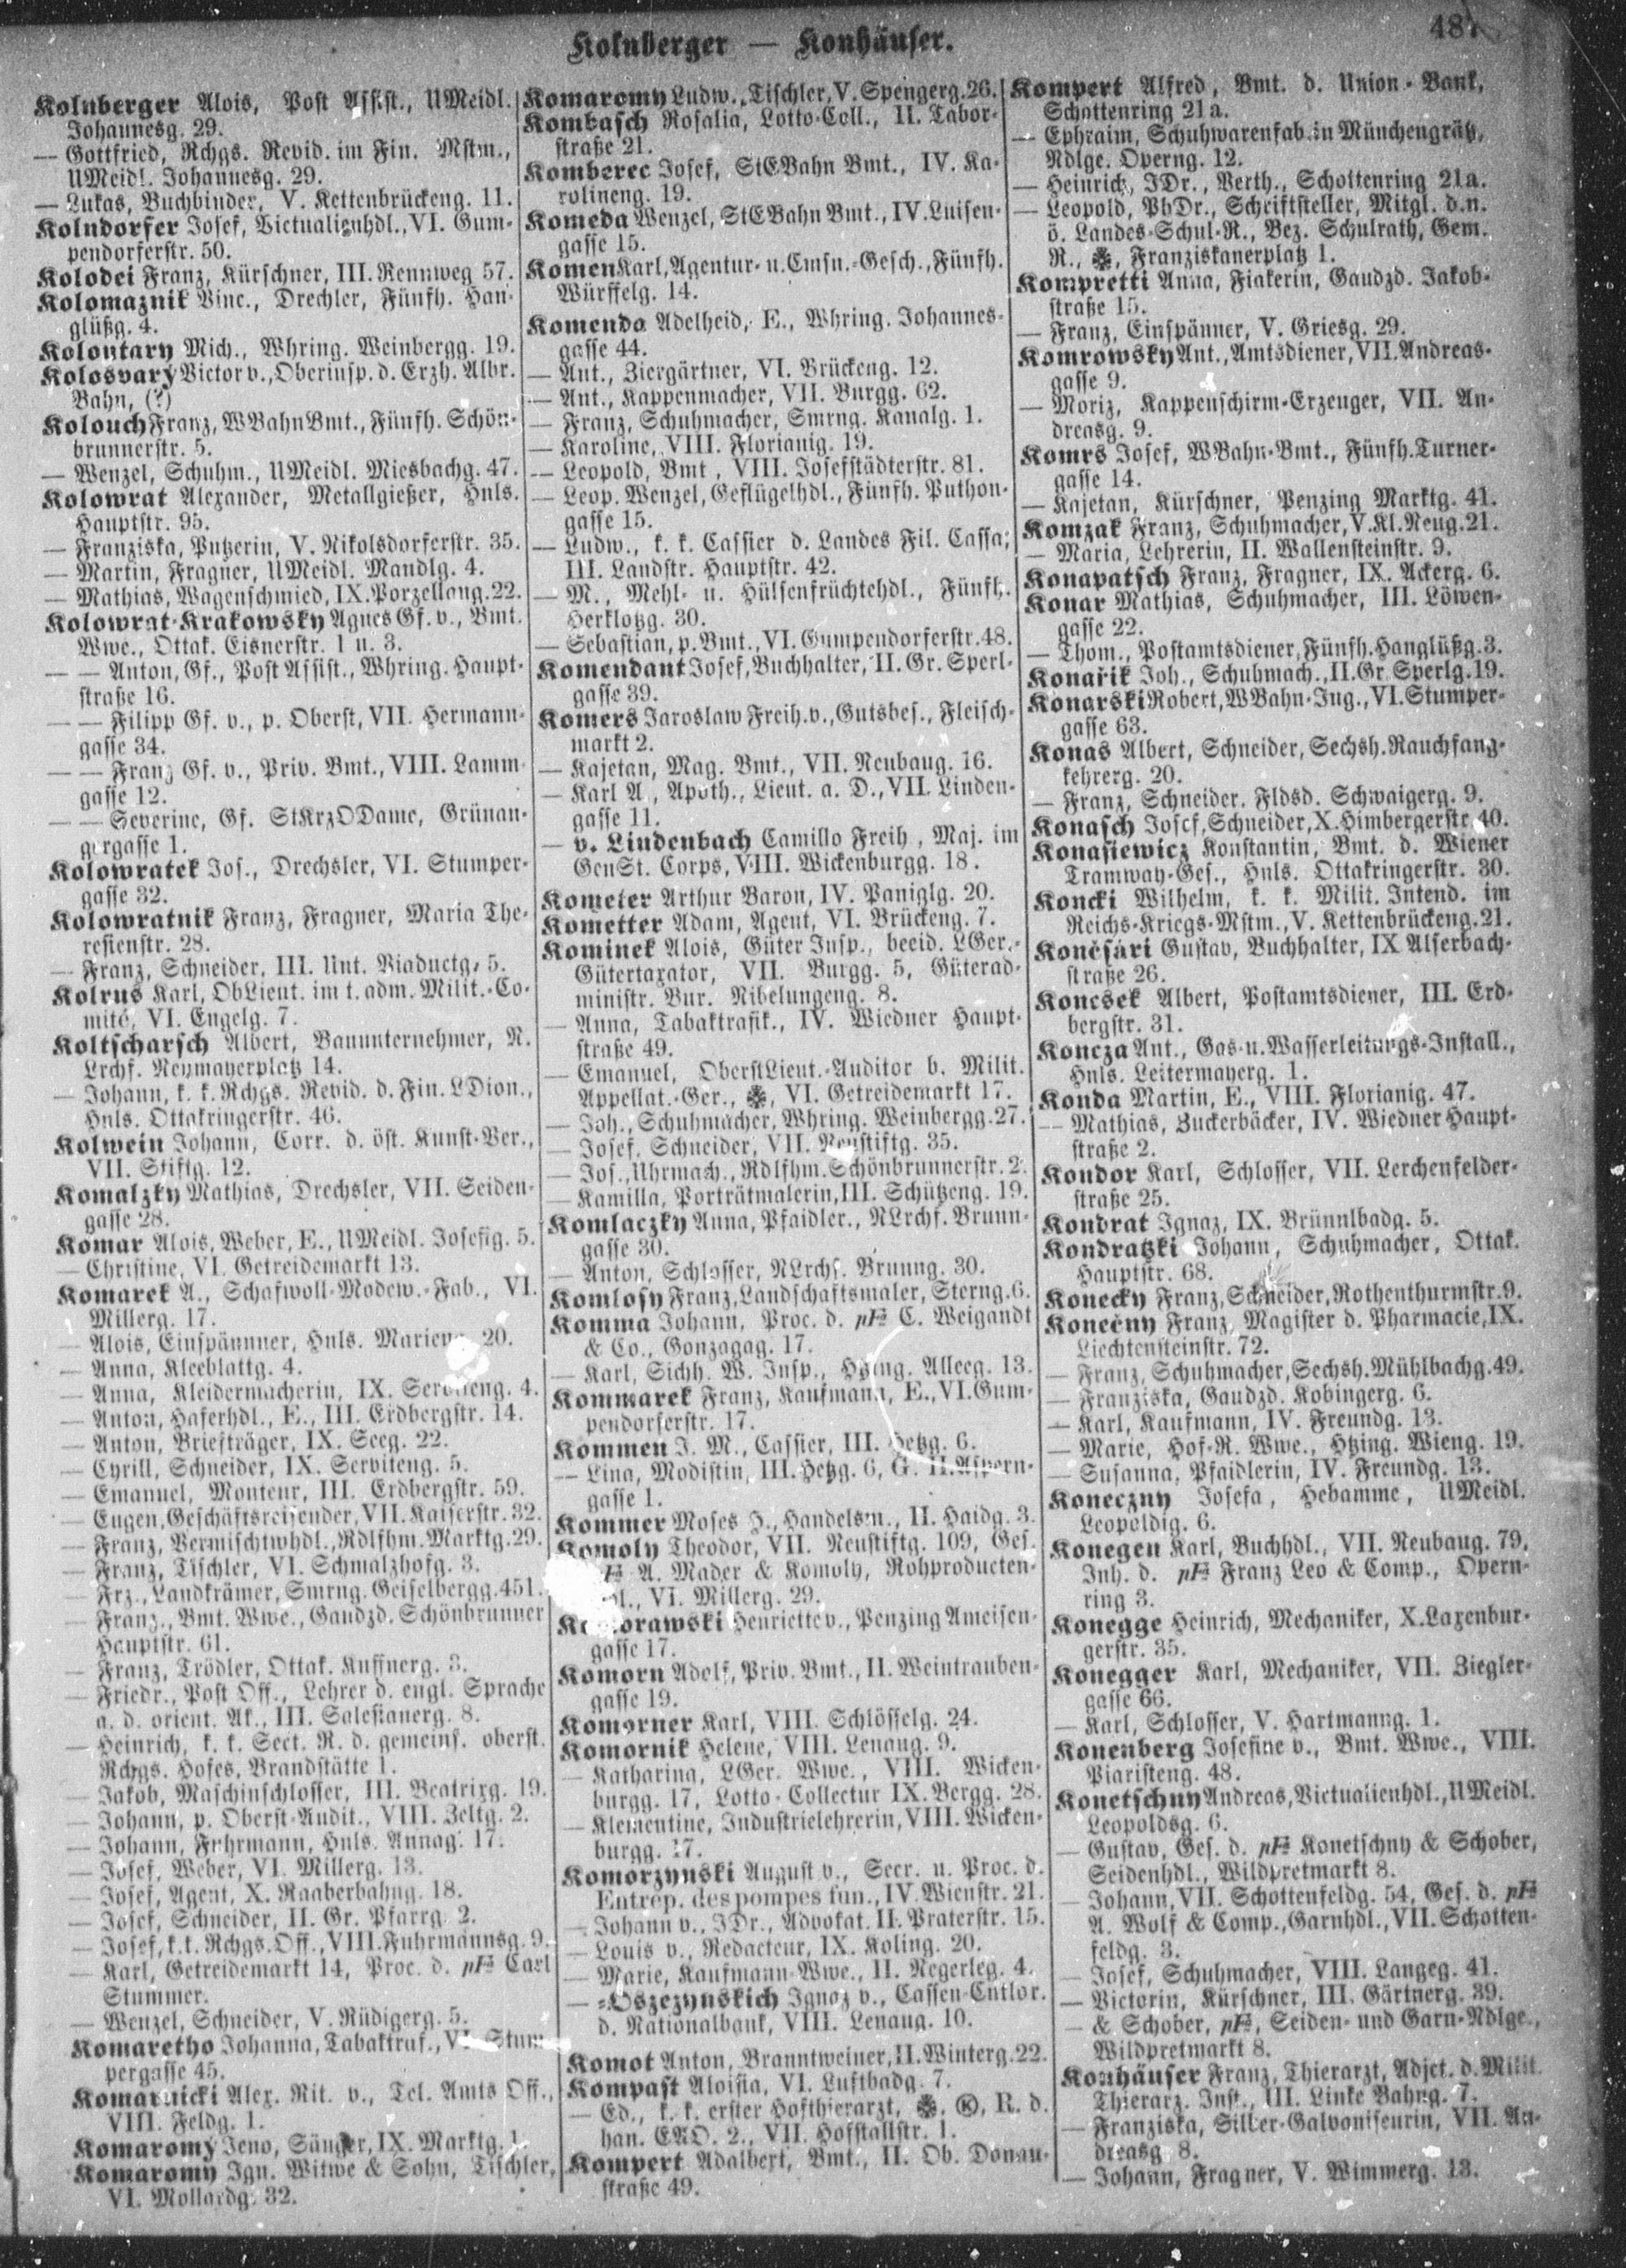 Kolnberger — Konhäuser.
487
Kolnberger Alois, Post Assist., UMeidl.
Johannesg. 29.
— Gottfried, Rchgs. Revid. im Fin. Mstm.,
UMeidl. Johannesg. 29.
— Lukas, Buchbinder, V. Kettenbrückeng. 11.
Kolndorfer Josef, Victualienhdl., VI. Gum-
pendorferstr. 50.
Kolodei Franz, Kürschner, III. Rennweg 57.
Kolomaznik Vinc., Drechsler, Fünfh. Han-
glüßg. 4.
Kolontary Mich., Whring. Weinbergg. 19.
Kolosvary Victor v., Oberinsp. d. Erzh. Albr.
Bahn, (?)
Kolouch Franz, WBahnBmt., Fünfh. Schön-
brunnerstr. 5.
— Wenzel, Schuhm., UMeidl. Miesbachg. 47.
Kolowrat Alexander, Metallgießer, Hnls.
Hauptstr. 95.
— Franziska, Putzerin, V. Nikolsdorferstr. 35.
— Martin, Fragner, UMeidl. Mandlg. 4.
— Mathias, Wagenschmied, IX. Porzellang. 22.
Kolowrat-Krakowsky Agnes Gf. v., Bmt.
Wwe., Ottak. Eisnerstr. 1 u. 3.
— — Anton, Gf., Post Assist., Whring. Haupt-
straße 16.
— — Filipp Gf. v., p. Oberst, VII. Hermann-
gasse 34.
— — Franz Gf. v., Priv. Bmt., VIII. Lamm-
gasse 12.
— — Severine, Gf. StKrzODame, Grünan-
gergasse 1.
Kolowratek Jos., Drechsler, VI. Stumper-
gasse 32.
Kolowratnik Franz, Fragner, Maria The-
resienstr. 28.
— Franz, Schneider, III. Unt. Viaductg. 5.
Kolrus Karl, ObLieut. im t. adm. Milit.-Co-
mité, VI. Engelg. 7.
Koltscharsch Albert, Bauunternehmer, N.
Lrchf. Neumayerplatz 14.
— Johann, k. k. Rchgs. Revid. d. Fin. LDion.,
Hnls. Ottakringerstr. 46.
Kolwein Johann, Corr. d. öst. Kunst-Ver.,
VII. Stiftg. 12.
Komalzky Mathias, Drechsler, VII. Seiden-
gasse 28.
Komar Alois, Weber, E., UMeidl. Josefig. 5.
— Christine, VI. Getreidemarkt 13.
Komarek A., Schafwoll-Modew.-Fab., VI.
Millerg. 17.
— Alois, Einspännner, Hnls. 20.
— Anna, Kleeblattg. 4.
— Anna, Kleidermacherin, IX. Serviteng. 4.
— Anton, Haferhdl., E., III. Erdbergstr. 14.
— Anton, Briefträger, IX. Seeg. 22.
— Cyrill, Schneider, IX. Serviteng. 5.
— Emanuel, Monteur, III. Erdbergstr. 59.
— Eugen, Geschäftsreisender, VII. Kaiserstr. 32.
— Franz, Vermischtwhdl., Rdlfhm. Marktg. 29.
— Franz, Tischler, VI. Schmalzhofg. 3.
— Frz., Landkrämer, Smrng. Geiselbergg. 451.
— Franz., Bmt. Wwe., Gaudzd. Schönbrunner
Hauptstr. 61.
— Franz, Trödler, Ottak. Kuffnerg. 3.
— Friedr., Post Off., Lehrer d. engl. Sprache
a. d. orient. Ak., III. Salesianerg. 8.
— Heinrich, k. k. Sect. R. d. gemeins. oberst.
Rchgs. Hofes, Brandstätte 1.
— Jakob, Maschinschlosser, III. Beatrixg. 19.
— Johann, p. Oberst-Audit., VIII. Zeltg. 2.
— Johann, Fuhrmann, Hnls. Annag. 17.
— Josef, Weber, VI. Millerg. 13.
— Josef, Agent, X. Raaberbahng. 18.
— Josef, Schneider, II. Gr. Pfarrg. 2.
— Josef, k. k. Rchgs. Off., VIII. Fuhrmannsg. 9.
— Karl, Getreidemarkt 14, Proc. d. pF Carl
Stummer.
— Wenzel, Schneider, V. Rüdigerg. 5.
Komaretho Johanna, Tabaktraf., VI. Stum-
pergasse 45.
Komarnicki Alex. Rit. v., Tel. Amts Off.,
VIII. Feldg. 1.
Komaromy Jeno, Sänger, IX. Marktg. 1.
Komaromy Ign. Witwe & Sohn, Tischler,
VI. Mollardg. 32.
Komaromy Ludw., Tischler, V. Spengerg. 26.
Kombasch Rosalia, Lotto-Coll., II. Tabor-
straße 21.
Komberec Josef, StEBahn Bmt., IV. Ka-
rolineng. 19.
Komeda Wenzel, StEBahn Bmt., IV. Luisen-
gasse 15.
Komen Karl, Agentur- u. Cmsn.-Gesch., Fünfh.
Würffelg. 14.
Komenda Adelheid, E., Whring. Johannes-
gasse 44.
— Ant., Ziergärtner, VI. Brückeng. 12.
— Ant., Kappenmacher, VII. Burgg. 62.
— Franz, Schuhmacher, Smrng. Kanalg. 1.
— Karoline, VIII. Florianig. 19.
— Leopold, Bmt., VIII. Josefstädterstr. 81.
— Leop. Wenzel, Geflügelhdl., Fünfh. Puthon-
gasse 15.
— Ludw., k. k. Cassier d. Landes Fil. Cassa,
III. Landstr. Hauptstr. 42.
— M., Mehl- u. Hülsenfrüchtehdl., Fünfh.
Herklotzg. 30.
— Sebastian, p. Bmt., VI. Gumpendorferstr. 48.
Komendant Josef, Buchhalter, II. Gr. Sperl-
gasse 39.
Komers Jaroslaw Freih. v., Gutsbes., Fleisch-
markt 2.
— Kajetan, Mag. Bmt., VII. Neubaug. 16.
— Karl A., Apoth., Lieut. a. D., VII. Linden-
gasse 11.
— v. Lindenbach Camillo Freih., Maj. im
GenSt. Corps, VIII. Wickenburgg. 18.
Kometer Arthur Baron, IV. Paniglg. 20.
Kometter Adam, Agent, VI. Brückeng. 7.
Kominek Alois, Güter Insp., beeid. LGer.-
Gütertaxator, VII. Burgg. 5, Güterad-
ministr. Bur. Nibelungeng. 8.
— Anna, Tabaktrafik., IV. Wiedner Haupt-
straße 49.
— Emanuel, OberstLieut.-Auditor b. Milit.
Appellat.-Ger., VI. Getreidemarkt 17.
— Joh., Schuhmacher, Whring. Weinbergg. 27.
— Josef, Schneider, VII. Neustiftg. 35.
— Jos., Uhrmach., Rdlfhm. Schönbrunnerstr. 2.
— Kamilla, Porträtmalerin, III. Schützeng. 19.
Komlaczky Anna, Pfaidler., NLrchf. Brunn-
gasse 30.
— Anton, Schlosser, NLrchf. Brunng. 30.
Komlosy Franz, Landschaftsmaler, Sterng. 6.
Komma Johann, Proc. d. pF C. Weigandt
& Co., Gonzagag. 17.
— Karl, Sichh. W. Insp., Htzing. Alleeg. 13.
Kommarek Franz, Kaufmann, E., VI. Gum-
pendorferstr. 17.
Kommen J. M., Cassier, III. Hetzg. 6.
— Lina, Modistin, III. Hetzg. 6, G. II. Aspern-
gasse 1.
Kommer Moses J., Handelsm., II. Haidg. 3.
Komoly Theodor, VII. Neustiftg. 109, Ges.
A. Mader & Komoly, Rohproducten-
VI. Millerg. 29.
Komorawski Henriette v., Penzing Ameisen-
gasse 17.
Komorn Adolf, Priv. Bmt., II. Weintrauben-
gasse 19.
Komorner Karl, VIII. Schlösselg. 24.
Komornik Helene, VIII. Lenaug. 9.
— Katharina, LGer. Wwe., VIII. Wicken-
burgg. 17, Lotto-Collectur IX. Bergg. 28.
— Klementine, Industrielehrerin, VIII. Wicken-
burgg. 17.
Komorzynski August v., Secr. u. Proc. d.
Entrep. des pompes fun., IV. Wienstr. 21.
— Johann v., JDr., Advokat. II. Praterstr. 15.
— Louis v., Redacteur, IX. Koling. 20.
— Marie, Kaufmann-Wwe., II. Negerleg. 4.
— -Oszezynskich Ignaz v., Cassen-Cntlor.
d. Nationalbank, VIII. Lenaug. 10.
Komot Anton, Branntweiner, II. Winterg. 22.
Kompast Aloisia, VI. Luftbadg. 7.
— Ed., k. k. erster Hofthierarzt, Ⓚ, R. d.
han. EAO. 2., VII. Hofstallstr. 1.
Kompert Adalbert, Bmt., II. Ob. Donau-
straße 49.
Kompert Alfred, Bmt. d. Union-Bank,
Schottenring 21a.
— Ephraim, Schuhwarenfab. in Münchengrätz,
Ndlge. Operng. 12.
— Heinrich, JDr., Verth., Schottenring 21a.
— Leopold, PhDr., Schriftsteller, Mitgl. d. n.
ö. Landes-Schul-R., Bez. Schulrath, Gem.
R., Franziskanerplatz 1.
Kompretti Anna, Fiakerin, Gaudzd. Jakob-
straße 15.
— Franz, Einspänner, V. Griesg. 29.
Komrowsky Ant., Amtsdiener, VII. Andreas-
gasse 9.
— Moriz, Kappenschirm-Erzeuger, VII. An-
dreasg. 9.
Komrs Josef, WBahn-Bmt., Fünfh. Turner-
gasse 14.
— Kajetan, Kürschner, Penzing Marktg. 41.
Komzak Franz, Schuhmacher, V. Kl. Neug. 21.
— Maria, Lehrerin, II. Wallensteinstr. 9.
Konapatsch Franz, Fragner, IX. Ackerg. 6.
Konar Mathias, Schuhmacher, III. Löwen-
gasse 22.
— Thom., Postamtsdiener, Fünfh. Hanglüßg. 3.
Konařik Joh., Schuhmach., II. Gr. Sperlg. 19.
Konarski Robert, WBahn-Ing., VI. Stumper-
gasse 63.
Konas Albert, Schneider, Sechsh. Rauchfang-
kehrerg. 20.
— Franz, Schneider. Fldsd. Schwaigerg. 9.
Konasch Josef, Schneider, X. Himbergerstr. 40.
Konasiewicz Konstantin, Bmt. d. Wiener
Tramway-Ges., Hnls. Ottakringerstr. 30.
Koncki Wilhelm, k. k. Milit. Intend. im
Reichs-Kriegs-Mstm., V. Kettenbrückeng. 21.
Koncsári Gustav, Buchhalter, IX Alserbach-
straße 26.
Koncsek Albert, Postamtsdiener, III. Erd-
bergstr. 31.
Koncza Ant., Gas- u. Wasserleitungs-Install.,
Hnls. Leitermayerg. 1.
Konda Martin, E., VIII. Florianig. 47.
— Mathias, Zuckerbäcker, IV. Wiedner Haupt-
straße 2.
Kondor Karl, Schlosser, VII. Lerchenfelder-
straße 25.
Kondrat Ignaz, IX. Brünnlbadg. 5.
Kondratzki Johann, Schuhmacher, Ottak.
Hauptstr. 68.
Konecky Franz, Schneider, Rothenthurmstr. 9.
Konečny Franz, Magister d. Pharmacie, IX.
Liechtensteinstr. 72.
— Franz, Schuhmacher, Sechsh. Mühlbachg. 49.
— Franziska, Gaudzd. Kobingerg. 6.
— Karl, Kaufmann, IV. Freundg. 13.
— Marie, Hof-R. Wwe., Htzing. Wieng. 19.
— Susanna, Pfaidlerin, IV. Freundg. 13.
Koneczny Josefa, Hebamme, UMeidl.
Leopoldig. 6.
Konegen Karl, Buchhdl., VII. Neubaug. 79,
Inh. d. pF Franz Leo & Comp., Opern-
ring 3.
Konegge Heinrich, Mechaniker, X. Laxenbur-
gerstr. 35.
Konegger Karl, Mechaniker, VII. Ziegler-
gasse 66.
— Karl, Schlosser, V. Hartmanng. 1.
Konenberg Josefine v., Bmt. Wwe., VIII.
Piaristeng. 48.
Konetschny Andreas, Victualienhdl., UMeidl.
Leopoldsg. 6.
— Gustav, Ges. d. pF Konetschny & Schober,
Seidenhdl., Wildpretmarkt 8.
— Johann, VII. Schottenfeldg. 54, Ges. d. pF
A. Wolf & Comp., Garnhdl., VII. Schotten-
feldg. 3.
— Josef, Schuhmacher, VIII. Langeg. 41.
— Victorin, Kürschner, III. Gärtnerg. 39.
— & Schober, pF, Seiden- und Garn-Ndlge.,
Wildpretmarkt 8.
Konhäuser Franz, Thierarzt, Adjct. d. Milit.
Thierarz. Inst., III. Linke Bahng. 7.
— Franziska, Silber-Galvoniseurin, VII. An-
dreasg. 8.
— Johann, Fragner, V. Wimmerg. 13.